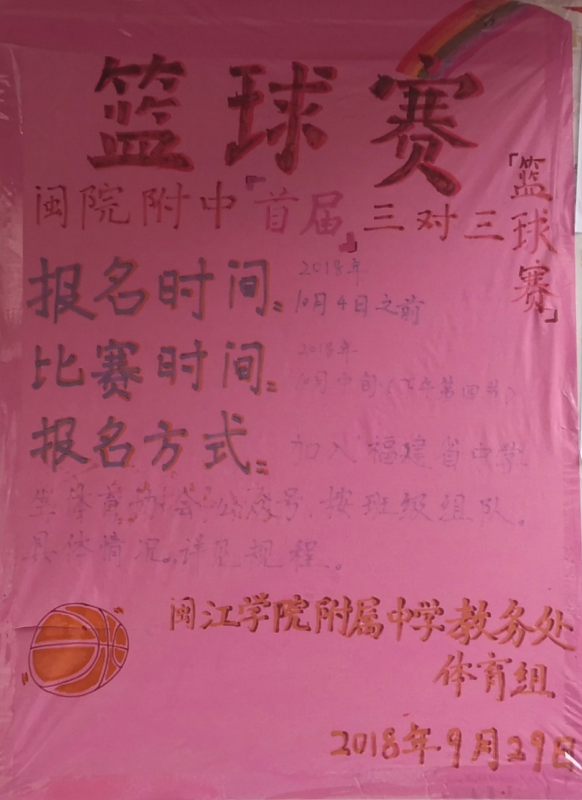 篮球赛
闽院附中「首届」三对三
「篮球赛」
报名时间: 2018年
10月4日之前
比赛时间: 2018年
10月中旬(下午第四节)
报名方式: 加入福建省中学
生体育协会公众号,按班级组队。
具体情况,详见规程。
闽江学院附属中学教务处
体育组
2018年9月29日